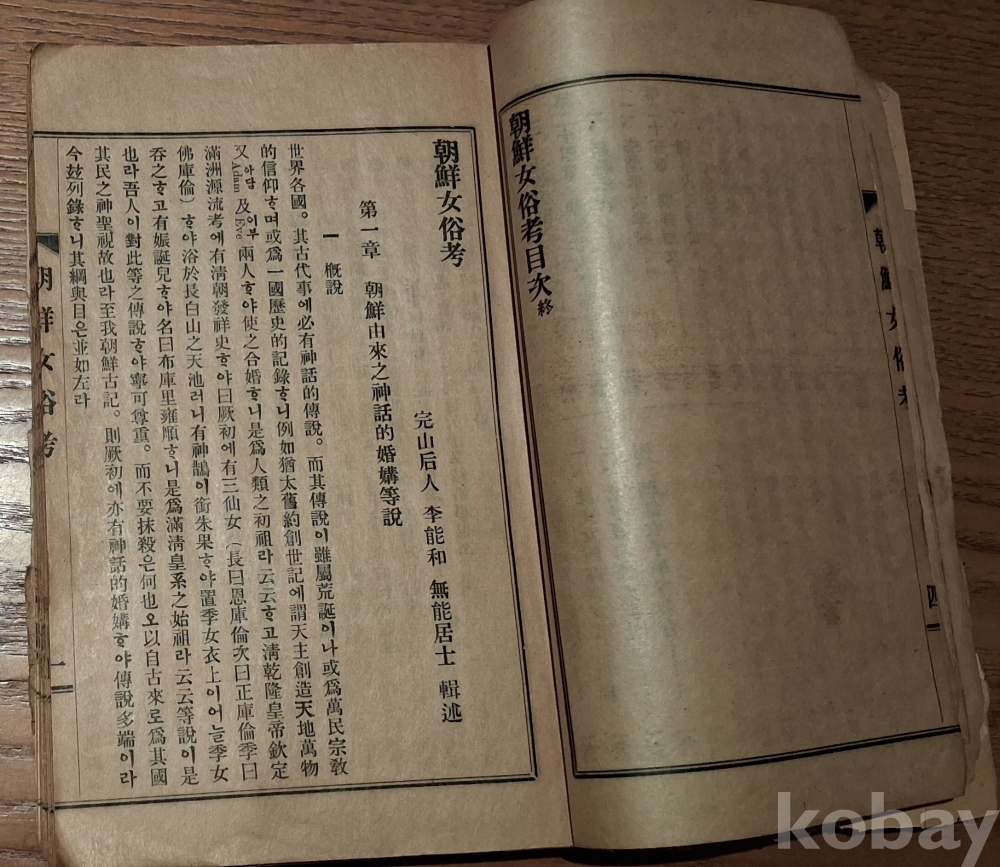 朝鮮女俗考
四
朝鮮女俗考目次終
朝鮮女俗考
完山后人 李能和 無能居士 輯述
第一章 朝鮮由來之神話的婚媾等說
一 槪說
世界各國。其古代事에必有神話的傳說。而其傳說이雖屬荒誕이나或爲萬民宗敎
的信仰ᄒᆞ며或爲一國歷史的記錄ᄒᆞ니例如猶太舊約創世記에謂天主創造天地萬物
又아담Adam及이부Eve兩人ᄒᆞ야使之合婚ᄒᆞ니是爲人類之初祖라云云ᄒᆞ고淸乾隆皇帝欽定
滿洲源流考에有淸朝發祥史ᄒᆞ야曰厥初에有三仙女(長曰恩庫倫次曰正庫倫季曰
佛庫倫)ᄒᆞ야浴於長白山之天池러니有神鵲이銜朱果ᄒᆞ야置季女衣上이어ᄂᆞᆯ季女
呑之ᄒᆞ고有娠誕兒ᄒᆞ야名曰布庫里雍順ᄒᆞ니是爲滿淸皇系之始祖라云云等說이是
也라吾人이對此等之傳說ᄒᆞ야寧可尊重。而不要抹殺은何也오以自古來로爲其國
其民之神聖視故也라至我朝鮮古記。則厥初에亦有神話的婚媾ᄒᆞ야傳說多端이라
今玆列錄ᄒᆞ니其綱與目은並如左라
朝鮮女俗考
一
kobay